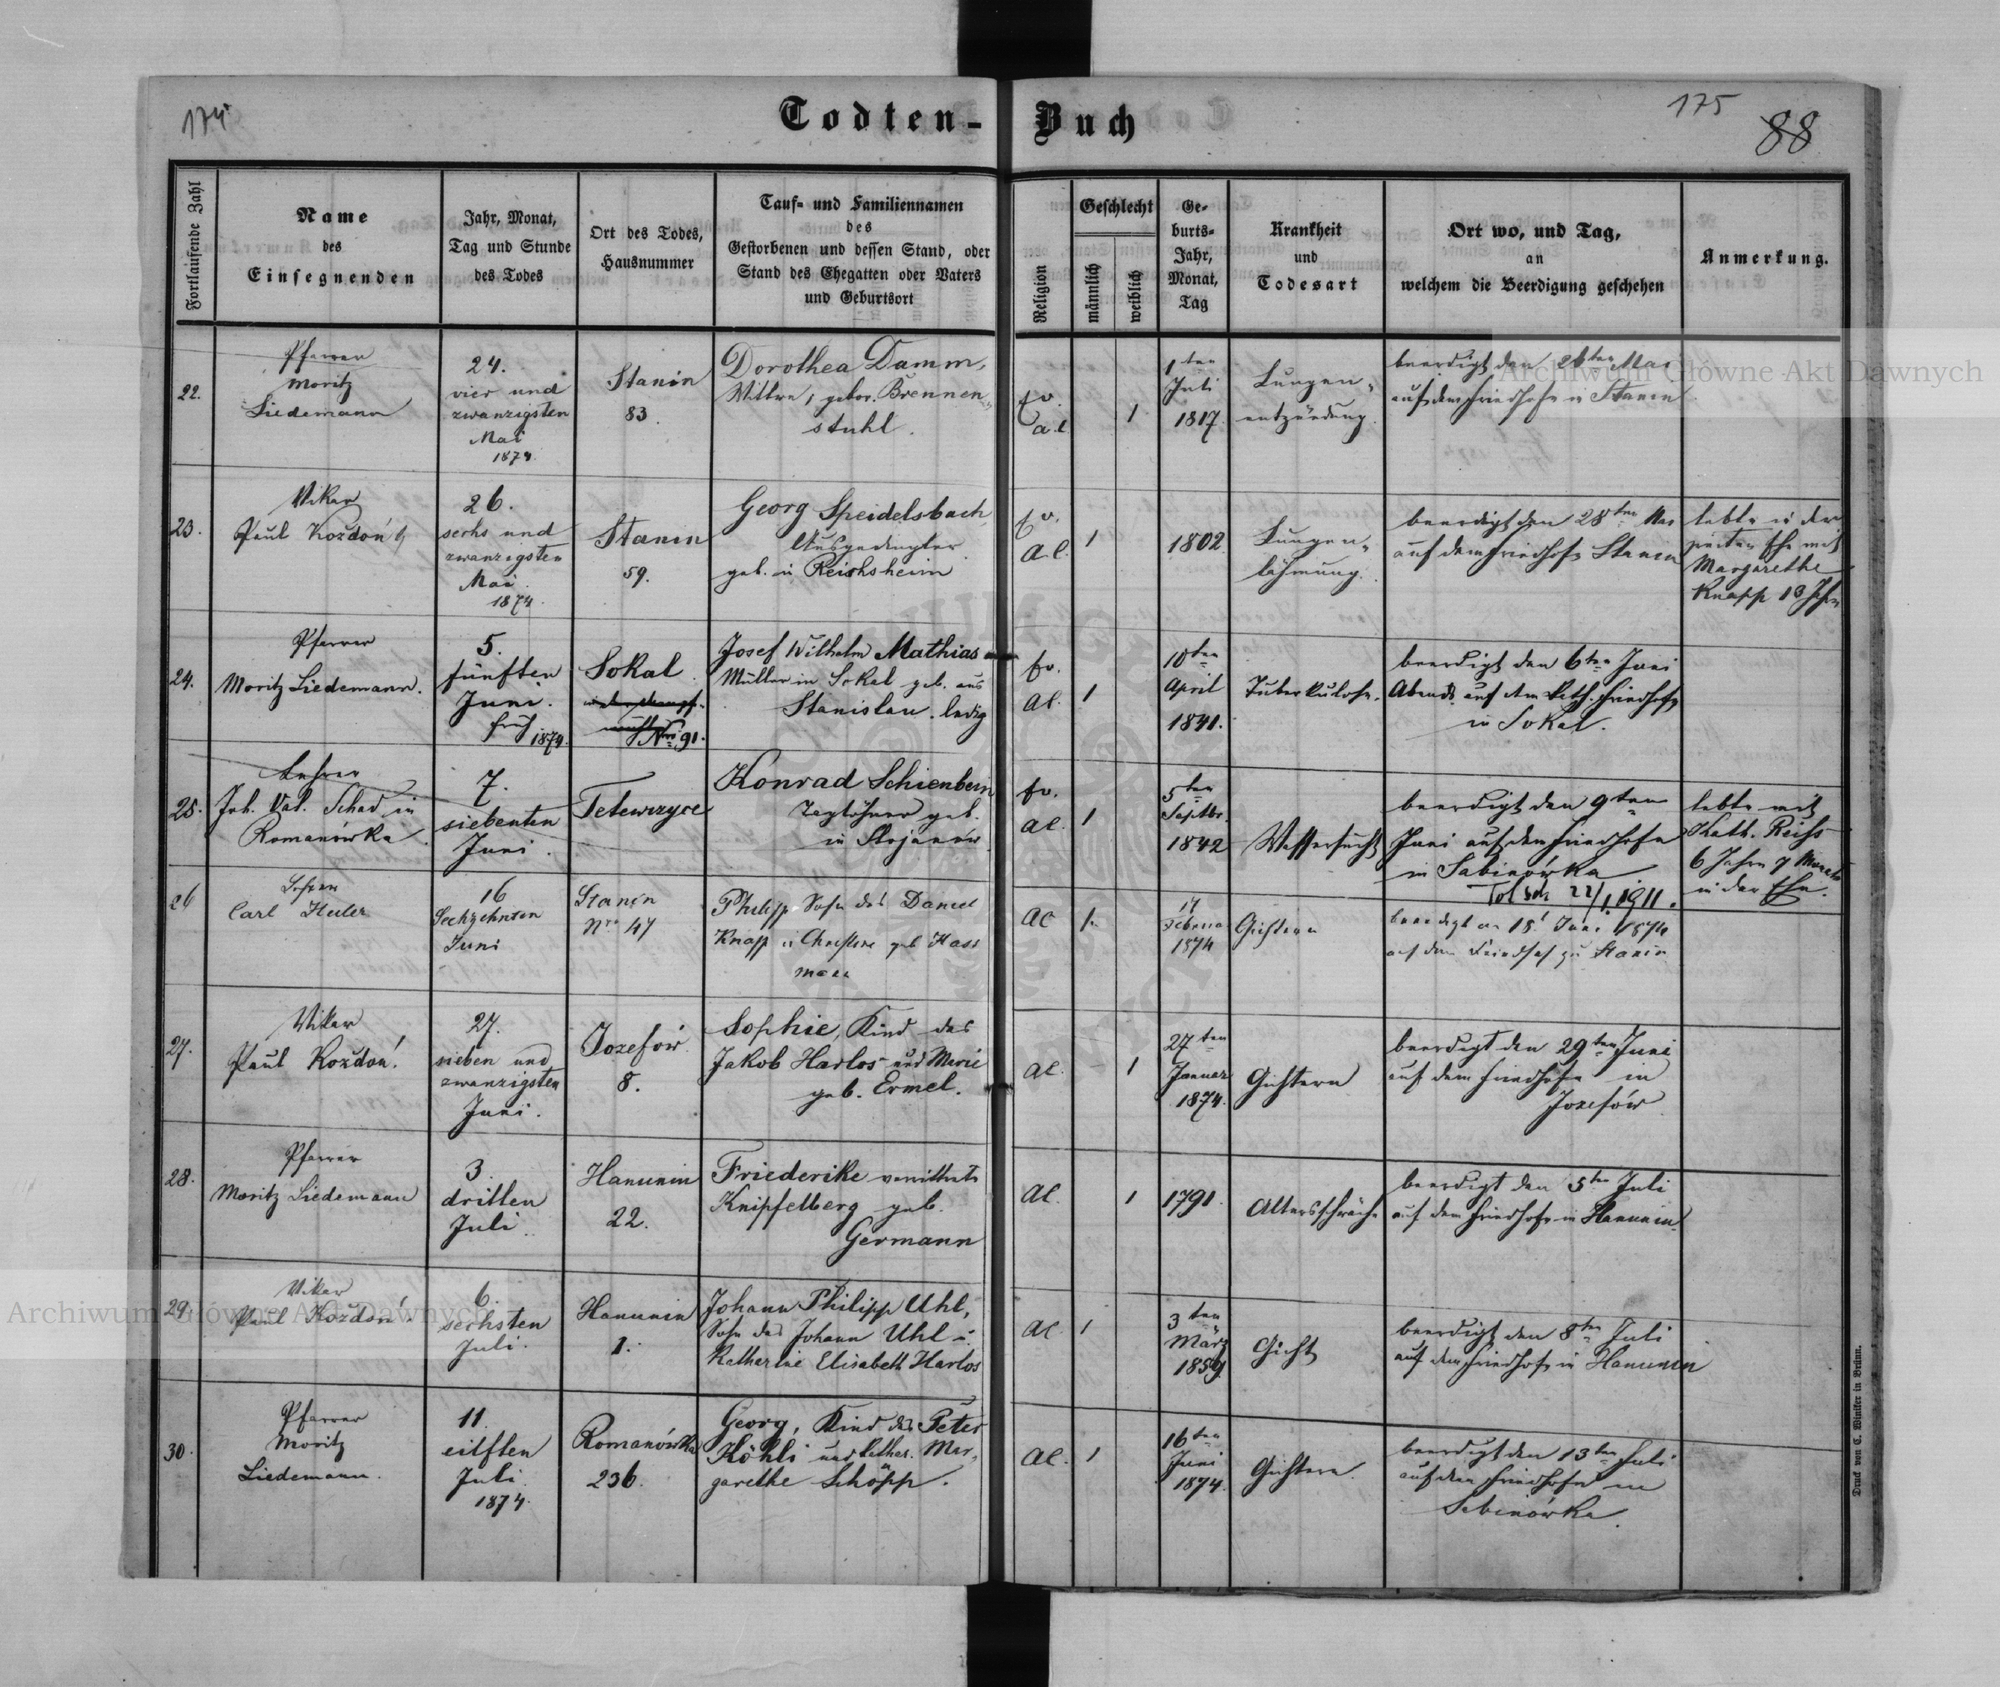 174
Todten-Buch
175
88
Fortlaufende Zahl
Name
des
Einsegnenden
Jahr, Monat,
Tag und Stunde
des Todes
Ort des Todes,
Hausnummer
Tauf- und Familiennamen
des
Gestorbenen und dessen Stand, oder
Stand des Ehegatten oder Vaters
und Geburtsort
Religion
Geschlecht
männlich
weiblich
Ge-
burts-
Jahr,
Monat,
Tag
Krankheit
und
Todesart
Ort wo, und Tag,
an
welchem die Beerdigung geschehen
Anmerkung.
22.
Pfarrer
Moritz
Liedemann
24.
vier und
zwanzigsten
Mai
1874.
Stanin
83.
Dorothea Damm,
Wittwe, gebor. Brennen
stuhl.
Ev.
a.c.
1
1ten
Juli
1817.
Lungen-
entzündung.
beerdigt den 26ten Mai
auf dem Friedhofe in Stanin
23.
Vikar
Paul Koždoń
26.
sechs und
zwanzigsten
Mai
1874.
Stanin
59.
Georg Speidelsbach,
Ausgedingter
geb. in Reichsheim
Ev.
a.c.
1
1802
Lungen-
lähmung.
beerdigt den 28ten Mai
auf dem Friedhofe Stanin
lebte in der
zweiten Ehe mit
Margarethe
Knapp 13 Jahre
24.
Pfarrer
Moritz Liedemann.
5.
fünften
Juni.
früh
1874.
Sokal.
Nro 91.
Josef Wilhelm Mathias
Müller in Sokal geb. aus
Stanislau. ledig
Ev.
ac.
1
10ten
April
1841.
Tuberkulose.
beerdigt den 6ten Juni
Abends auf dem kath. Friedhofe
in Sokal.
25.
Lehrer
Joh. Val. Schad in
Romanówka
7.
siebenten
Juni.
Tetewczyce
Konrad Schienbein
Taglöhner geb.
in Stojanów
Ev.
ac.
1
5ten
Septbr.
1842
Wassersucht
beerdigt den 9ten
Juni auf dem Friedhofe
in Sabinówka
22/1. 1911.
lebte mit
Kath. Reiss
6 Jahre 7 Monate
in der Ehe.
26
Lehrer
Carl Heiler
16
Sechzehnten
Juni
Stanin
Nro 47
Philipp Sohn des Daniel
Knapp u Christine geb Hass
mann
ac
1.
17
Februar
1874
Gichtern
beerdigt am 18t Juni 1874
auf dem Friedhof zu Stanin
27.
Vikar
Paul Koždoń.
27.
sieben und
zwanzigsten
Juni.
Jozefów.
8.
Sophie, Kind des
Jakob Harlos und Marie
geb. Ermel.
ac.
1
27ten
Januar
1874.
Gichtern
beerdigt den 29ten Juni
auf dem Friedhofe in
Jozefów.
28.
Pfarrer
Moritz Liedemann
3.
dritten
Juli.
Hanunin
22.
Friederike verwittwete
Knipfelberg geb.
Germann
ac.
1
1791.
Altersschwäche
beerdigt den 5ten Juli
auf dem Friedhofe in Hanunin.
29.
Vikar
Paul Koždoń.
6.
sechsten
Juli.
Hanunin
1.
Johann Philipp Uhl,
Sohn des Johann Uhl u.
Katharine Elisabeth Harlos
ac.
1
3ten
März
1859
Gicht
beerdigt den 8ten Juli
auf dem Friedhofe in Hanunin
30.
Pfarrer
Moritz
Liedemann.
11.
eilften
Juli.
1874.
Romanówka
236.
Georg, Kind des Peter
Köhli und Kathar. Mar-
garethe Schöpp.
ac.
1
16ten
Juni
1874.
Gichtern.
beerdigt den 13ten Juli
auf dem Friedhofe in
Sabinówka.
Druck von C. Winiker in Brünn.
Archiwum Główne Akt Dawnych
Archiwum Główne Akt Dawnych